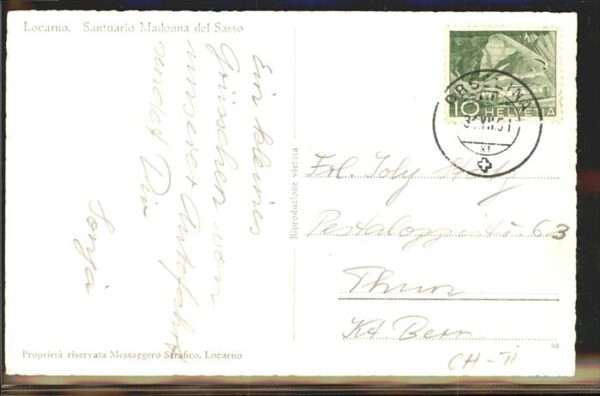 Locarno. Santuario Madonna del Sasso
Ein kleines
Grüsschen von
unserer Autofahrt
sendet Dir
Sonja
Riproduzione vietata
10 HELVETIA
ORSELINA
VII 51
Frl. Joly
Pestalozzistr. 63
Thun
Kt. Bern
Proprietà riservata Messaggero Serafico, Locarno
CH-TI